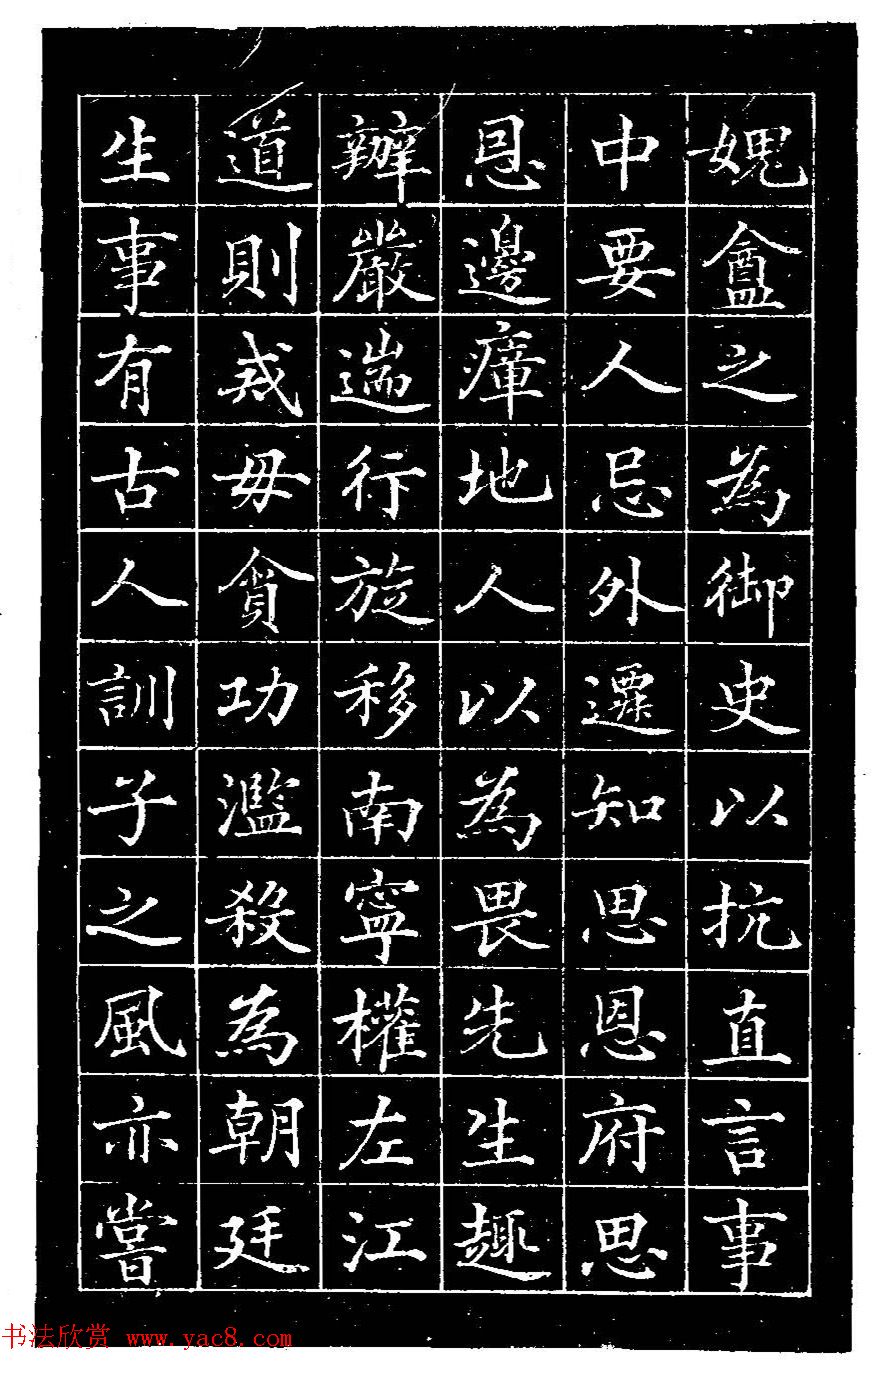 媿盦之為御史以抗直言事
中要人忌外遷知思恩府思
恩邊瘴地人以為畏先生趣
辦嚴遄行旋移南寧權左江
道則戒毋貪功濫殺為朝廷
生事有古人訓子之風亦嘗
书法欣赏 www.yac8.com